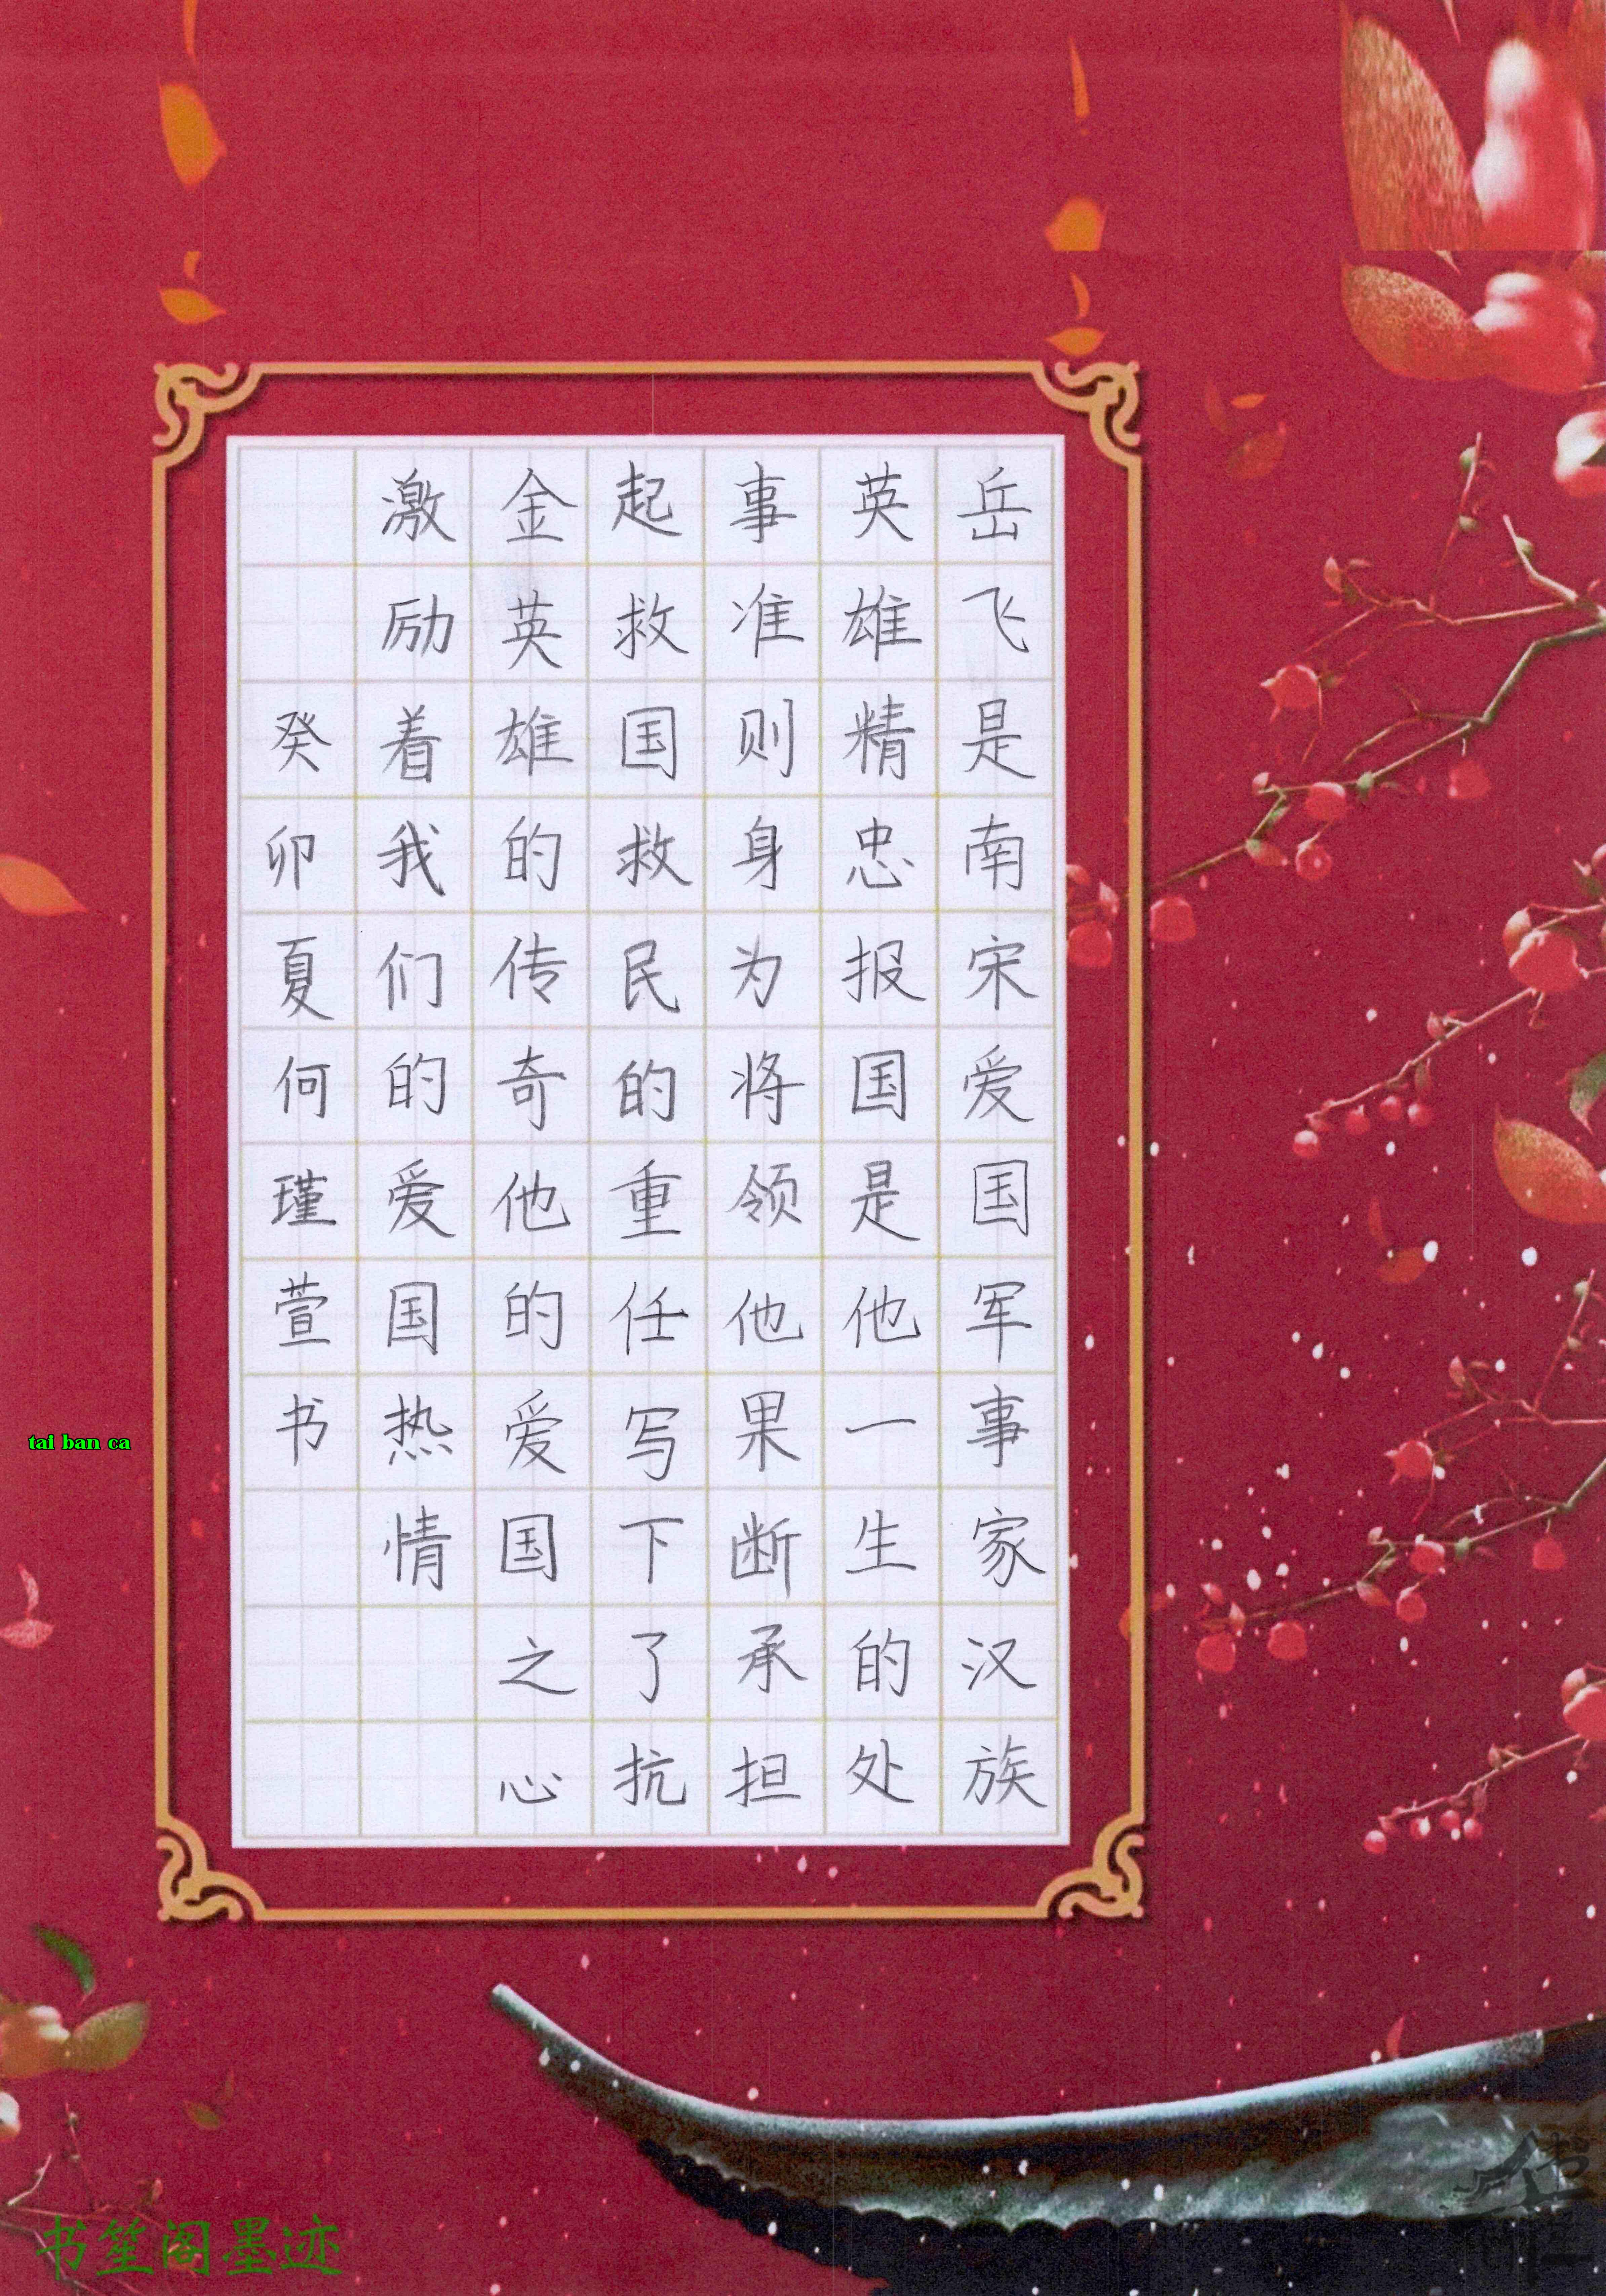 岳飞是南宋爱国军事家汉族
英雄精忠报国是他一生的处
事准则身为将领他果断承担
起救国救民的重任写下了抗
金英雄的传奇他的爱国之心
激励着我们的爱国热情
癸卯夏何瑾萱书
tai ban ca
书笙阁墨迹